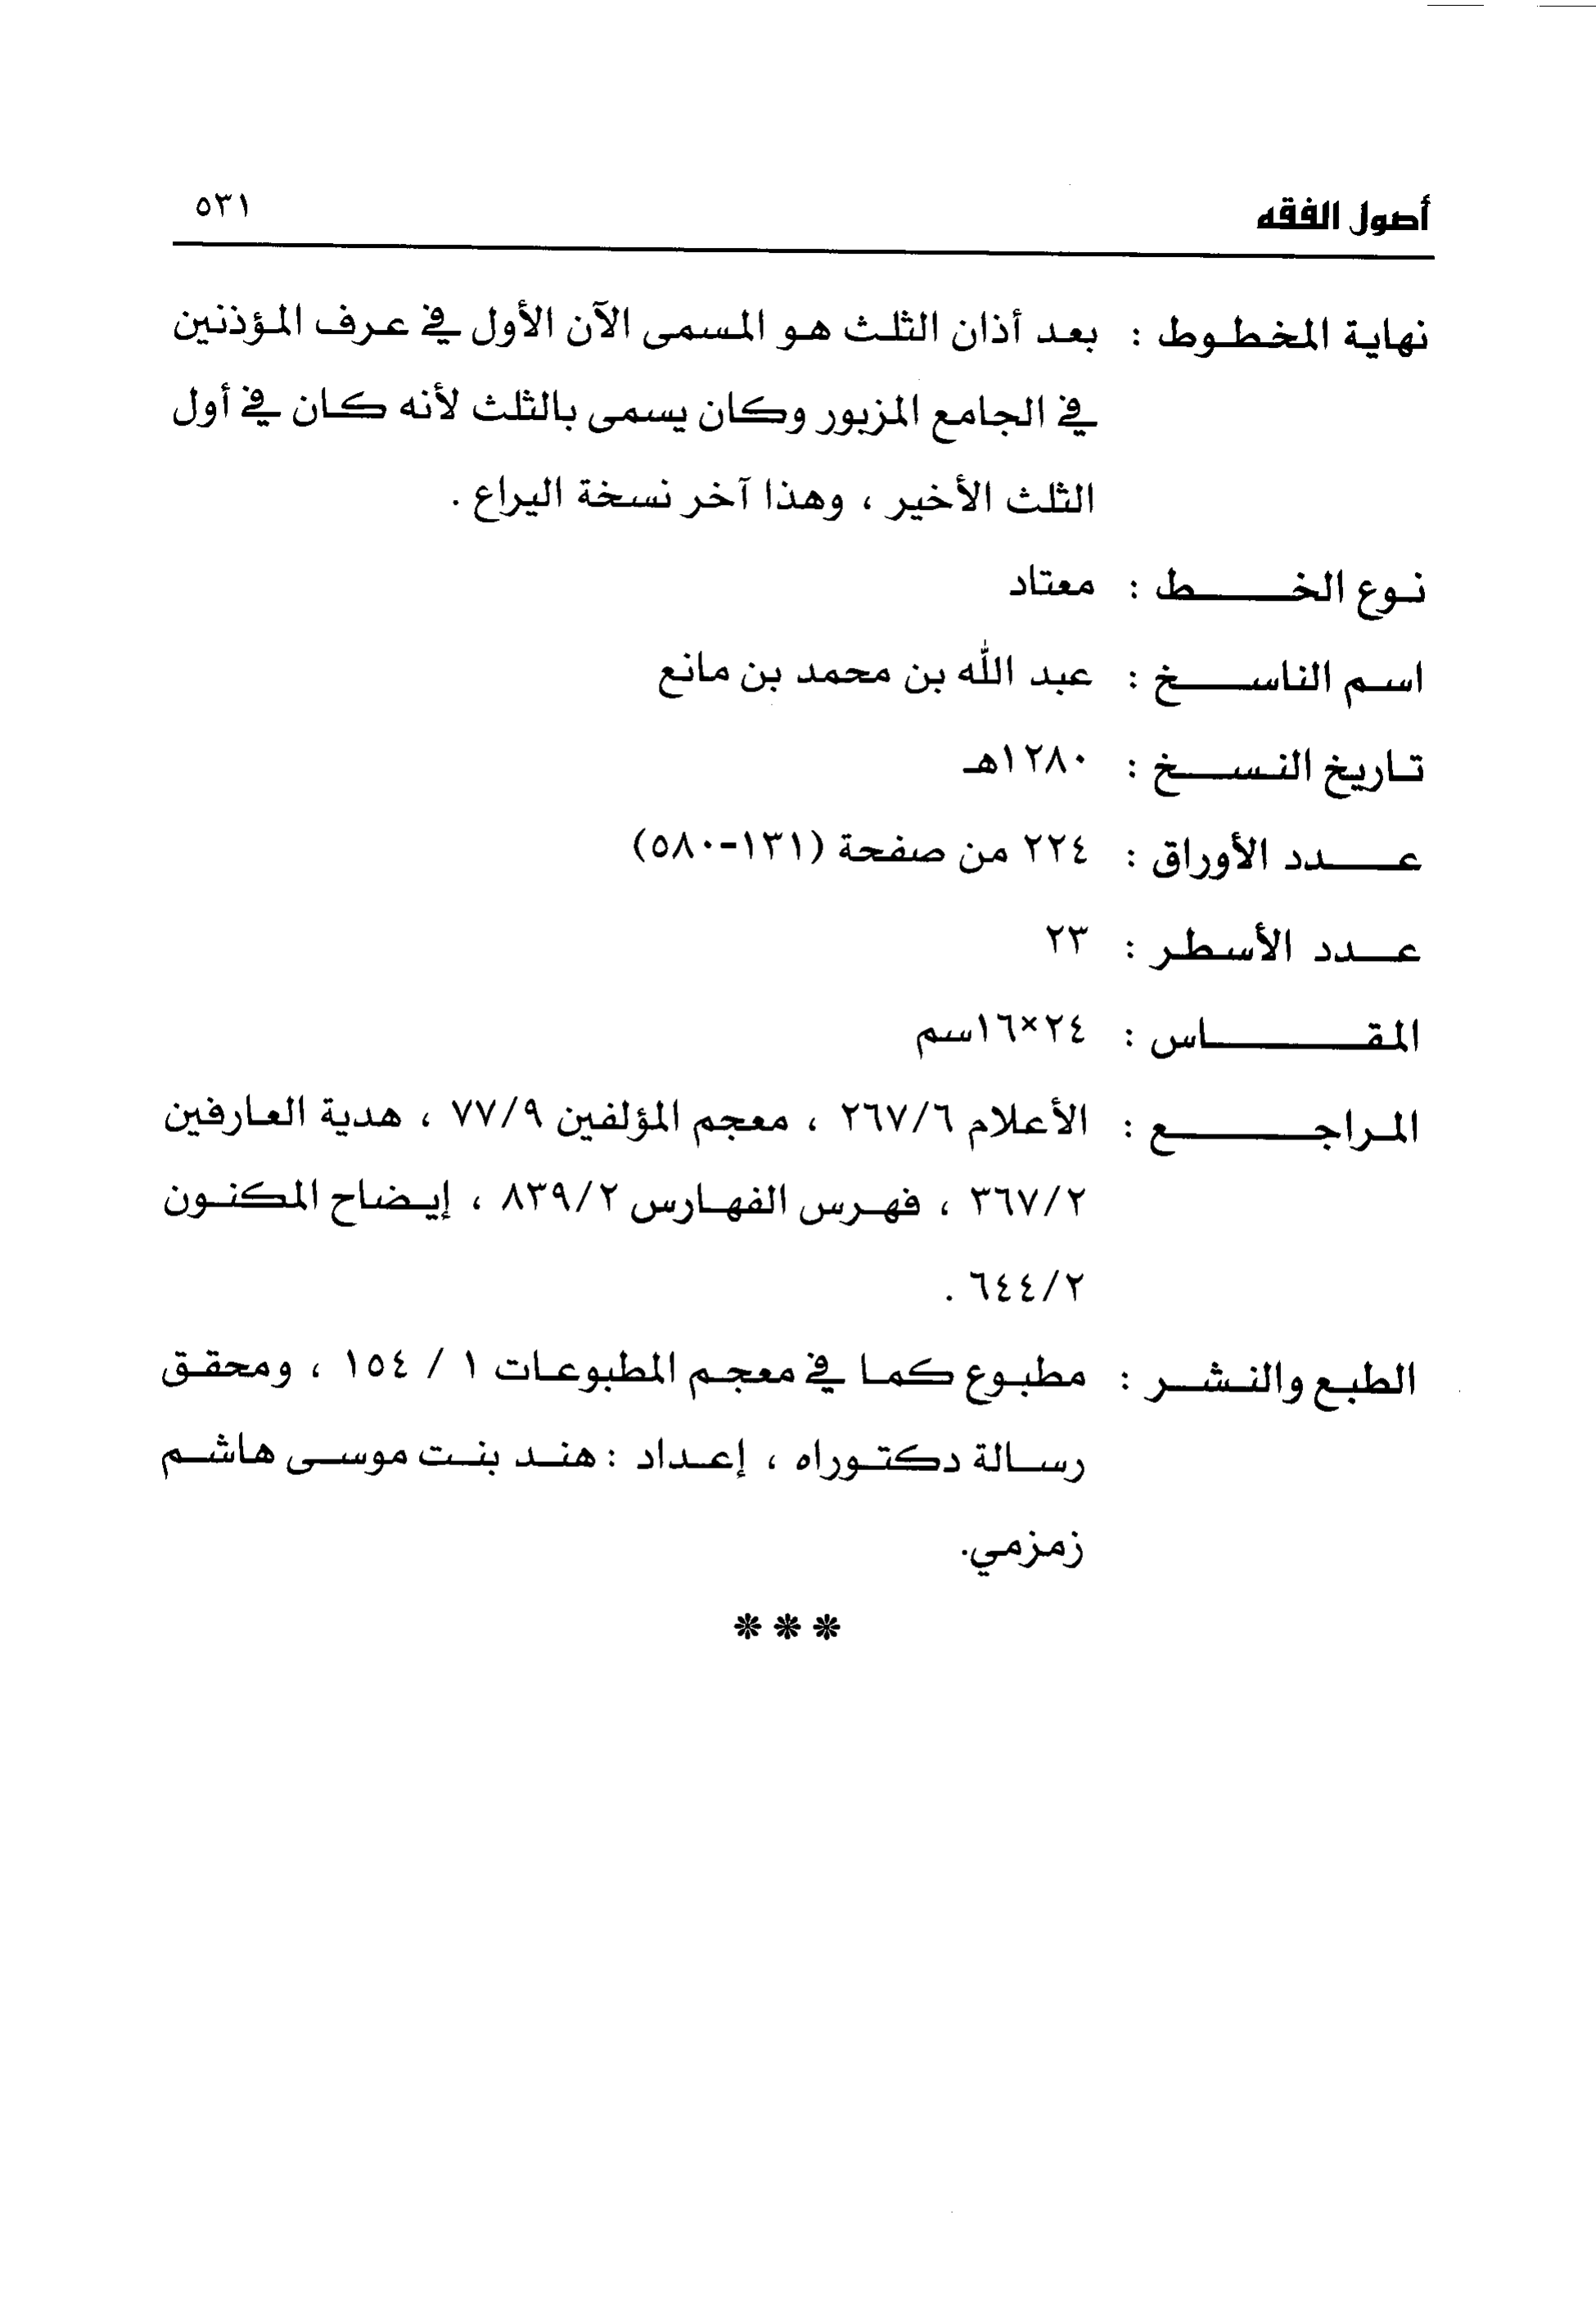 أصول الفقه ٥٣١
نهاية المخطوط : بعد أذان الثلث هو المسمى الآن الأول في عرف المؤذنين
في الجامع المزبور وكان يسمى بالثلث لأنه كان في أول
الثلث الأخير ، وهذا آخر نسخة اليراع .
نوع الخط : معتاد
اسم الناسخ : عبد الله بن محمد بن مانع
تاريخ النسخ : ١٢٨٠هـ
عدد الأوراق : ٢٢٤ من صفحة (١٣١-٥٨٠)
عدد الأسطر : ٢٣
المقاس : ٢٤×١٦سم
المراجع : الأعلام ٢٦٧/٦ ، معجم المؤلفين ٧٧/٩ ، هدية العارفين
٣٦٧/٢ ، فهرس الفهارس ٨٣٩/٢ ، إيضاح المكنون
٦٤٤/٢ .
الطبع والنشر : مطبوع كما في معجم المطبوعات ١ / ١٥٤ ، ومحقق
رسالة دكتوراه ، إعداد : هند بنت موسى هاشم
زمزمي.
***